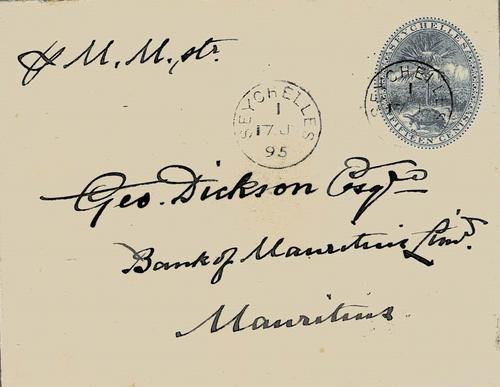 M. M. str.
SEYCHELLES
FIFTEEN CENTS
SEYCHELLES
1
SEYCHELLES
1
17 J
95
Geo. Dickson Esqre
Bank of Mauritius Limd.
Mauritius